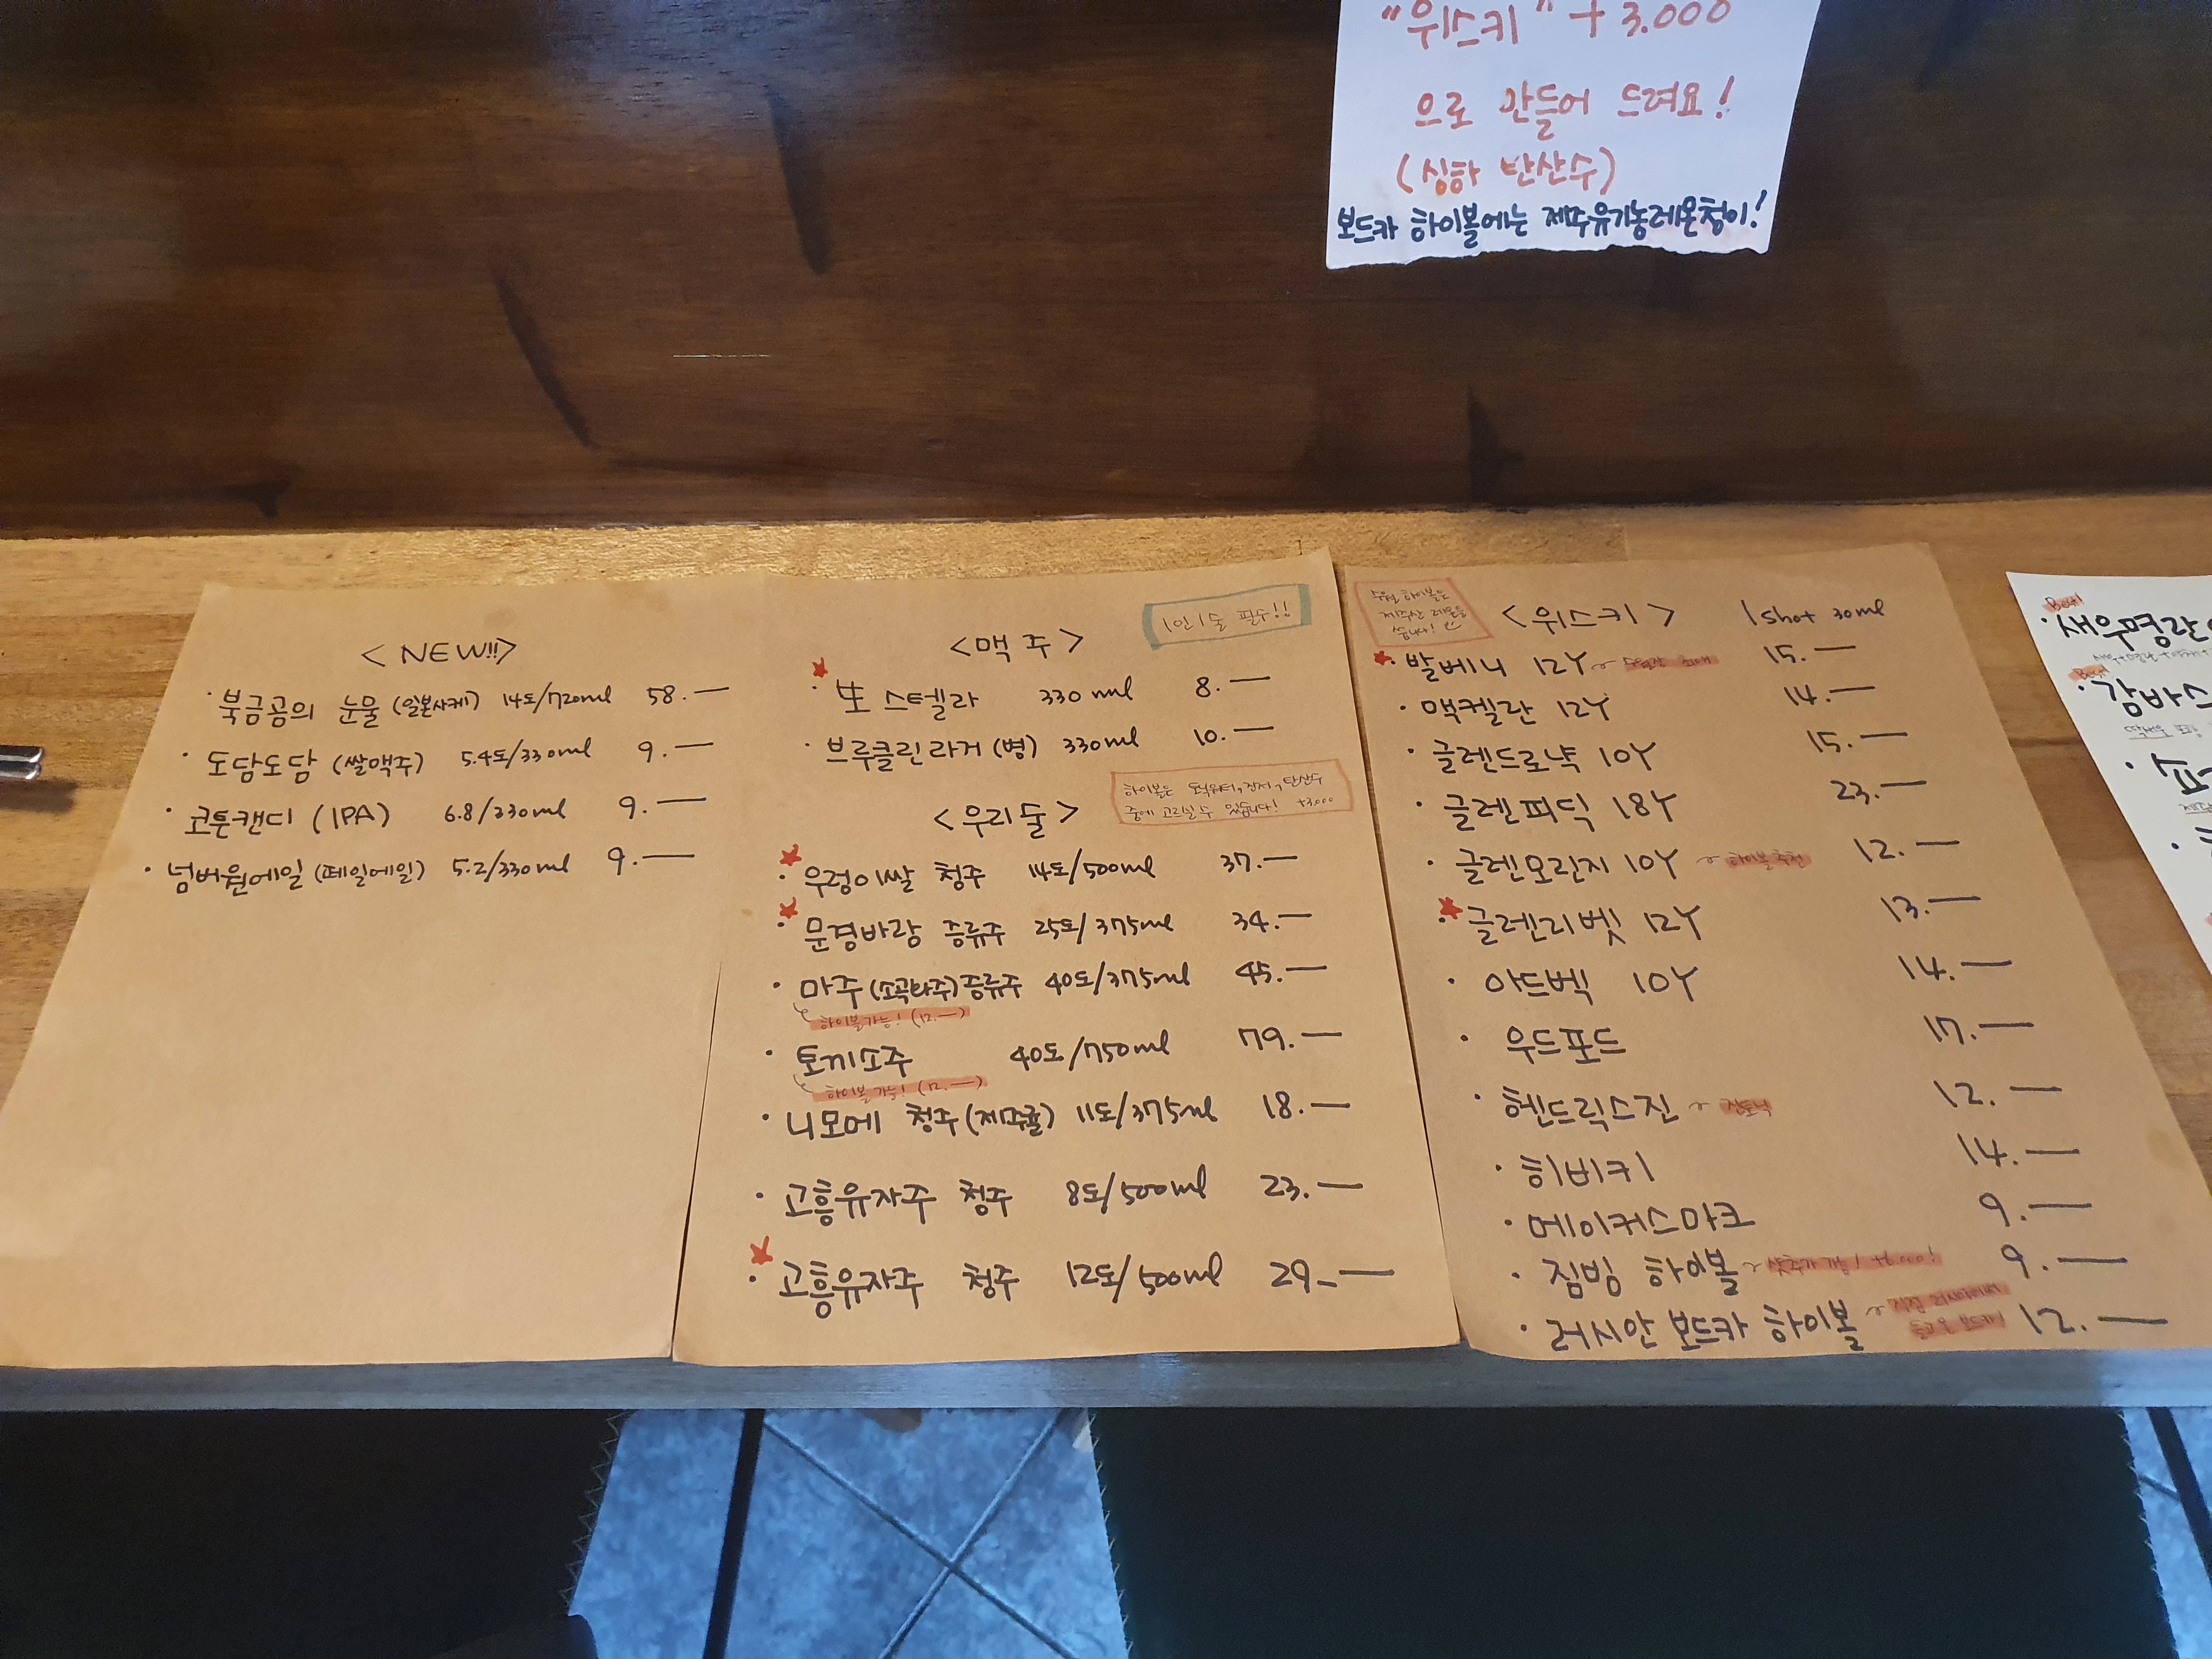 "위스키" + 3.000
으로 만들어 드려요!
(싱하 탄산수)
보드카 하이볼에는 제주유기농레몬청이!
<NEW!!>
· 북금곰의 눈물 (일본사케) 14도/720ml 58.—
· 도담도담 (쌀맥주) 5.4도/330ml 9.—
· 코튼캔디 (IPA) 6.8/330ml 9.—
· 넘버원에일 (페일에일) 5.2/330ml 9.—
1인 1술 필수!!
<맥주>
· 生 스텔라 330ml 8.—
· 브루클린라거 (병) 330ml 10.—
하이볼은 토닉워터, 진저, 탄산수
중에 고르실 수 있습니다! +3.000
<우리술>
· 우렁이쌀 청주 14도/500ml 37.—
· 문경바람 증류주 25도/375ml 34.—
· 마주 (소곡화주) 증류주 40도/375ml 45.—
하이볼가능! (12.—)
· 토끼소주 40도/750ml 79.—
하이볼 가능! (12.—)
· 니모메 청주 (제주귤) 11도/375ml 18.—
· 고흥유자주 청주 8도/500ml 23.—
· 고흥유자주 청주 12도/500ml 29.—
하이볼은
제주산 레몬을
씁니다!
<위스키> 1shot 30ml
· 발베니 12Y 15.—
· 맥켈란 12Y 14.—
· 글렌드로낙 10Y 15.—
· 글렌피딕 18Y 23.—
· 글렌모린지 10Y ~ 하이볼 추천 12.—
· 글렌리벳 12Y 13.—
· 아드벡 10Y 14.—
· 우드포드 17.—
· 헨드릭스진 ~ 진토닉 12.—
· 히비키 14.—
· 메이커스마크 9.—
· 짐빔 하이볼 ~ 샷추가 가능! +6.000! 9.—
· 러시안 보드카 하이볼 ~ 직접 러시아에서 12.—
들고 온 보드카!
Best!
· 새우명란
Best!
· 감바스